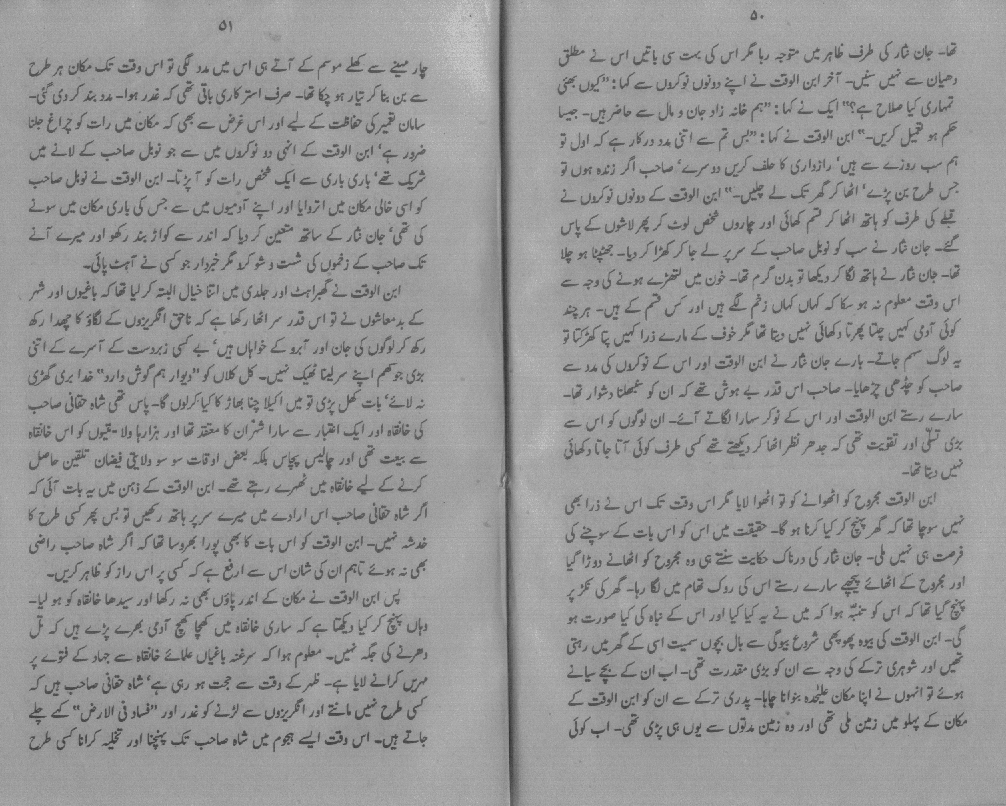 ۵۰
تھا۔ جان نثار کی طرف ظاہر میں متوجہ رہا مگر اس کی بہت سی باتیں اس نے مطلق
دھیان سے نہیں سنیں۔ آخر ابن الوقت نے اپنے دونوں نوکروں سے کہا: ”کیوں بھئی
تمہاری کیا صلاح ہے؟“ ایک نے کہا: ”ہم خانہ زاد جان و مال سے حاضر ہیں۔ جیسا
حکم ہو تعمیل کریں۔“ ابن الوقت نے کہا: ”بس تم سے اتنی مدد درکار ہے کہ اول تو
ہم سب روزے سے ہیں‘ رازداری کا حلف کریں دوسرے‘ صاحب اگر زندہ ہوں تو
جس طرح بن پڑے‘ اٹھا کر گھر تک لے چلیں۔“ ابن الوقت کے دونوں نوکروں نے
قبلے کی طرف کو ہاتھ اٹھا کر قسم کھائی اور چاروں شخص لوٹ کر پھر لاشوں کے پاس
گئے۔ جان نثار نے سب کو نوبل صاحب کے سر پر لے جا کر کھڑا کر دیا۔ جھٹپٹا ہو چلا
تھا۔ جان نثار نے ہاتھ لگا کر دیکھا تو بدن گرم تھا۔ خون میں لتھڑے ہونے کی وجہ سے
اس وقت معلوم نہ ہو سکا کہ کہاں کہاں زخم لگے ہیں اور کس قسم کے ہیں۔ ہر چند
کوئی آدمی کہیں چلتا پھرتا دکھائی نہیں دیتا تھا مگر خوف کے مارے ذرا کہیں پتا کھڑکتا تو
یہ لوگ سہم جاتے۔ بارے جان نثار نے ابن الوقت اور اس کے نوکروں کی مدد سے
صاحب کو چڈھی چڑھایا۔ صاحب اس قدر بے ہوش تھے کہ ان کو سنبھلنا دشوار تھا۔
سارے رستے ابن الوقت اور اس کے نوکر سہارا لگاتے آئے۔ ان لوگوں کو اس سے
بڑی تسلّی اور تقویت تھی کہ جدھر نظر اٹھا کر دیکھتے تھے کسی طرف کوئی آتا جاتا دکھائی
نہیں دیتا تھا۔
ابن الوقت مجروح کو اٹھوانے کو تو اٹھوا لایا مگر اس وقت تک اس نے ذرا بھی
نہیں سوچا تھا کہ گھر پہنچ کر کیا کرنا ہو گا۔ حقیقت میں اس کو اس بات کے سوچنے کی
فرصت ہی نہیں ملی۔ جان نثار کی دردناک حکایت سنتے ہی وہ مجروح کو اٹھانے دوڑا گیا
اور مجروح کے اٹھائے پیچھے سارے رستے اس کی روک تھام میں لگا رہا۔ گھر کی نکڑ پر
پہنچ گیا تھا کہ اس کو تنبّہ ہوا کہ میں نے یہ کیا کیا اور اس کے نباہ کی کیا صورت ہو
گی۔ ابن الوقت کی بیوہ پھوپھی شروع بیوگی سے بال بچوں سمیت اسی کے گھر میں رہتی
تھیں اور شوہری ترکے کی وجہ سے ان کو بڑی مقدرت تھی۔ اب ان کے بچے سیانے
ہوئے تو انہوں نے اپنا مکان علیٰحدہ بنوانا چاہا۔ پدری ترکے سے ان کو ابن الوقت کے
مکان کے پہلو میں زمین ملی تھی اور وہ زمین مدتوں سے یوں ہی پڑی تھی۔ اب کوئی
۵۱
چار مہینے سے کھلے موسم کے آتے ہی اس میں مدد لگی تو اس وقت تک مکان ہر طرح
سے بن بنا کر تیار ہو چکا تھا۔ صرف استر کاری باقی تھی کہ غدر ہوا۔ مدد بند کر دی گئی۔
سامان تعمیر کی حفاظت کے لیے اور اس غرض سے بھی کہ مکان میں رات کو چراغ جلنا
ضرور ہے‘ ابن الوقت کے انہی دو نوکروں میں سے جو نوبل صاحب کے لانے میں
شریک تھے‘ باری باری سے ایک شخص رات کو آ پڑتا۔ ابن الوقت نے نوبل صاحب
کو اسی خالی مکان میں اتروایا اور اپنے آدمیوں میں سے جس کی باری مکان میں سونے
کی تھی‘ جان نثار کے ساتھ متعین کر دیا کہ اندر سے کواڑ بند رکھو اور میرے آنے
تک صاحب کے زخموں کی شست و شو کرو مگر خبردار جو کسی نے آہٹ پائی۔
ابن الوقت نے گھبراہٹ اور جلدی میں اتنا خیال البتہ کر لیا تھا کہ باغیوں اور شہر
کے بدمعاشوں نے تو اس قدر سر اٹھا رکھا ہے کہ ناحق انگریزوں کے لگاؤ کا چھدا رکھ
رکھ کر لوگوں کی جان اور آبرو کے خواہاں ہیں‘ بے کسی زبردست کے آسرے کے اتنی
بڑی جوکھم اپنے سر لینا ٹھیک نہیں۔ کل کلاں کو ”دیوار ہم گوش دارد“ خدا بری گھڑی
نہ لائے‘ بات کھل پڑی تو میں اکیلا چنا بھاڑ کا کیا کر لوں گا۔ پاس تھی شاہ حقانی صاحب
کی خانقاہ اور ایک اعتبار سے سارا شہر ان کا معتقد تھا اور ہزارہا ولایتیوں کو اس خانقاہ
سے بیعت تھی اور چالیس پچاس بلکہ بعض اوقات سو سو ولایتی فیضان تلقین حاصل
کرنے کے لیے خانقاہ میں ٹھہرے رہتے تھے۔ ابن الوقت کے ذہن میں یہ بات آئی کہ
اگر شاہ حقانی صاحب اس ارادے میں میرے سر پر ہاتھ رکھیں تو بس پھر کسی طرح کا
خدشہ نہیں۔ ابن الوقت کو اس بات کا بھی پورا بھروسا تھا کہ اگر شاہ صاحب راضی
بھی نہ ہوئے تاہم ان کی شان اس سے ارفع ہے کہ کسی پر اس راز کو ظاہر کریں۔
پس ابن الوقت نے مکان کے اندر پاؤں بھی نہ رکھا اور سیدھا خانقاہ کو ہو لیا۔
وہاں پہنچ کر کیا دیکھتا ہے کہ ساری خانقاہ میں کھچا کھچ آدمی بھرے پڑے ہیں کہ تل
دھرنے کی جگہ نہیں۔ معلوم ہوا کہ سرغنہ باغیاں علمائے خانقاہ سے جہاد کے فتوے پر
مہریں کرانے لایا ہے۔ ظہر کے وقت سے حجت ہو رہی ہے‘ شاہ حقانی صاحب ہیں کہ
کسی طرح نہیں مانتے اور انگریزوں سے لڑنے کو غدر اور ”فساد فی الارض“ کہے چلے
جاتے ہیں۔ اس وقت ایسے ہجوم میں شاہ صاحب تک پہنچنا اور تخلیہ کرانا کسی طرح